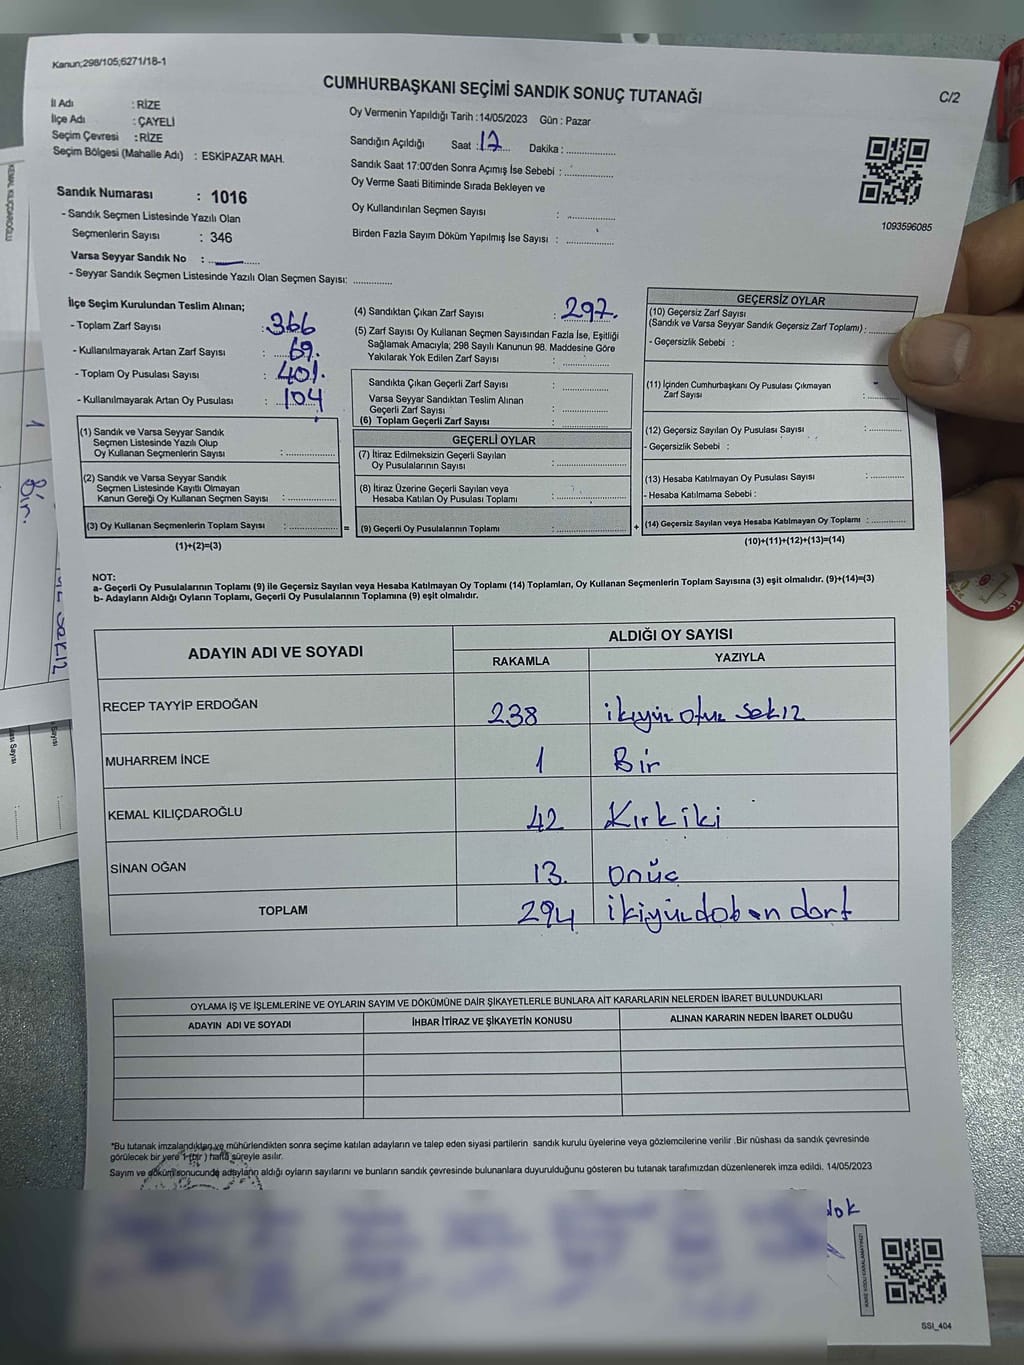 Kanun;298/105;6271/18-1
CUMHURBAŞKANI SEÇİMİ SANDIK SONUÇ TUTANAĞI
C/2
İl Adı : RİZE
İlçe Adı : ÇAYELİ
Seçim Çevresi : RİZE
Seçim Bölgesi (Mahalle Adı) : ESKİPAZAR MAH.
Sandık Numarası : 1016
- Sandık Seçmen Listesinde Yazılı Olan
Seçmenlerin Sayısı : 346
Varsa Seyyar Sandık No :
- Seyyar Sandık Seçmen Listesinde Yazılı Olan Seçmen Sayısı:
Oy Vermenin Yapıldığı Tarih :14/05/2023 Gün : Pazar
Sandığın Açıldığı Saat : 17 Dakika :
Sandık Saat 17:00'den Sonra Açımış İse Sebebi :
Oy Verme Saati Bitiminde Sırada Bekleyen ve
Oy Kullandırılan Seçmen Sayısı :
Birden Fazla Sayım Döküm Yapılmış İse Sayısı :
1093596085
İlçe Seçim Kurulundan Teslim Alınan;
- Toplam Zarf Sayısı : 366
- Kullanılmayarak Artan Zarf Sayısı : 69.
- Toplam Oy Pusulası Sayısı : 401.
- Kullanılmayarak Artan Oy Pusulası : 104
(1) Sandık ve Varsa Seyyar Sandık
Seçmen Listesinde Yazılı Olup
Oy Kullanan Seçmenlerin Sayısı :
(2) Sandık ve Varsa Seyyar Sandık
Seçmen Listesinde Kayıtlı Olmayan
Kanun Gereği Oy Kullanan Seçmen Sayısı :
(3) Oy Kullanan Seçmenlerin Toplam Sayısı : =
(1)+(2)=(3)
(4) Sandıktan Çıkan Zarf Sayısı : 297.
(5) Zarf Sayısı Oy Kullanan Seçmen Sayısından Fazla İse, Eşitliği
Sağlamak Amacıyla; 298 Sayılı Kanunun 98. Maddesine Göre
Yakılarak Yok Edilen Zarf Sayısı :
Sandıkta Çıkan Geçerli Zarf Sayısı :
Varsa Seyyar Sandıktan Teslim Alınan
Geçerli Zarf Sayısı :
(6) Toplam Geçerli Zarf Sayısı :
GEÇERLİ OYLAR
(7) İtiraz Edilmeksizin Geçerli Sayılan
Oy Pusulalarının Sayısı :
(8) İtiraz Üzerine Geçerli Sayılan veya
Hesaba Katılan Oy Pusulası Toplamı :
(9) Geçerli Oy Pusulalarının Toplamı : +
GEÇERSİZ OYLAR
(10) Geçersiz Zarf Sayısı
(Sandık ve Varsa Seyyar Sandık Geçersiz Zarf Toplamı) :
- Geçersizlik Sebebi :
(11) İçinden Cumhurbaşkanı Oy Pusulası Çıkmayan
Zarf Sayısı :
(12) Geçersiz Sayılan Oy Pusulası Sayısı :
- Geçersizlik Sebebi :
(13) Hesaba Katılmayan Oy Pusulası Sayısı :
- Hesaba Katılmama Sebebi :
(14) Geçersiz Sayılan veya Hesaba Katılmayan Oy Toplamı :
(10)+(11)+(12)+(13)=(14)
NOT:
a- Geçerli Oy Pusulalarının Toplamı (9) ile Geçersiz Sayılan veya Hesaba Katılmayan Oy Toplamı (14) Toplamları, Oy Kullanan Seçmenlerin Toplam Sayısına (3) eşit olmalıdır. (9)+(14)=(3)
b- Adayların Aldığı Oyların Toplamı, Geçerli Oy Pusulalarının Toplamına (9) eşit olmalıdır.
ADAYIN ADI VE SOYADI
ALDIĞI OY SAYISI
RAKAMLA YAZIYLA
RECEP TAYYİP ERDOĞAN 238 ikiyüz otuz sekiz
MUHARREM İNCE 1 Bir
KEMAL KILIÇDAROĞLU 42 Kırkiki
SİNAN OĞAN 13. onüç
TOPLAM 294 ikiyüzdoksan dört
OYLAMA İŞ VE İŞLEMLERİNE VE OYLARIN SAYIM VE DÖKÜMÜNE DAİR ŞİKAYETLERLE BUNLARA AİT KARARLARIN NELERDEN İBARET BULUNDUKLARI
ADAYIN ADI VE SOYADI İHBAR İTİRAZ VE ŞİKAYETİN KONUSU ALINAN KARARIN NEDEN İBARET OLDUĞU
*Bu tutanak imzalandıktan ve mühürlendikten sonra seçime katılan adayların ve talep eden siyasi partilerin sandık kurulu üyelerine veya gözlemcilerine verilir .Bir nüshası da sandık çevresinde
görülecek bir yere 1 (bir ) hafta süreyle asılır.
Sayım ve döküm sonucunda adayların aldığı oyların sayılarını ve bunların sandık çevresinde bulunanlara duyurulduğunu gösteren bu tutanak tarafımızdan düzenlenerek imza edildi. 14/05/2023
SSİ_404